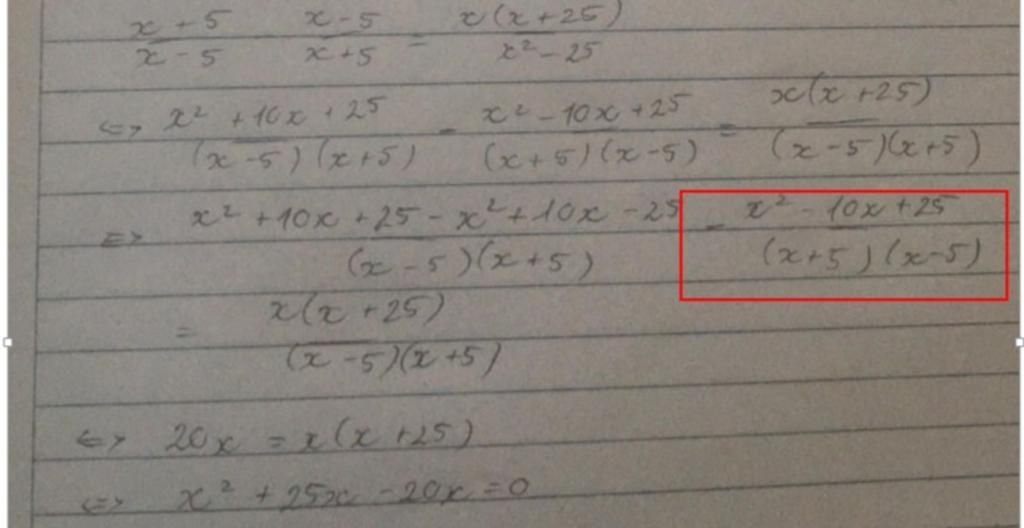 x + 5 / x - 5   x - 5 / x + 5 = x(x + 25) / x² - 25
<=> x² + 10x + 25 / (x - 5)(x + 5) - x² - 10x + 25 / (x + 5)(x - 5) = x(x + 25) / (x - 5)(x + 5)
<=> x² + 10x + 25 - x² + 10x - 25 / (x - 5)(x + 5) - x² - 10x + 25 / (x + 5)(x - 5)
= x(x + 25) / (x - 5)(x + 5)
<=> 20x = x(x + 25)
<=> x² + 25x - 20x = 0